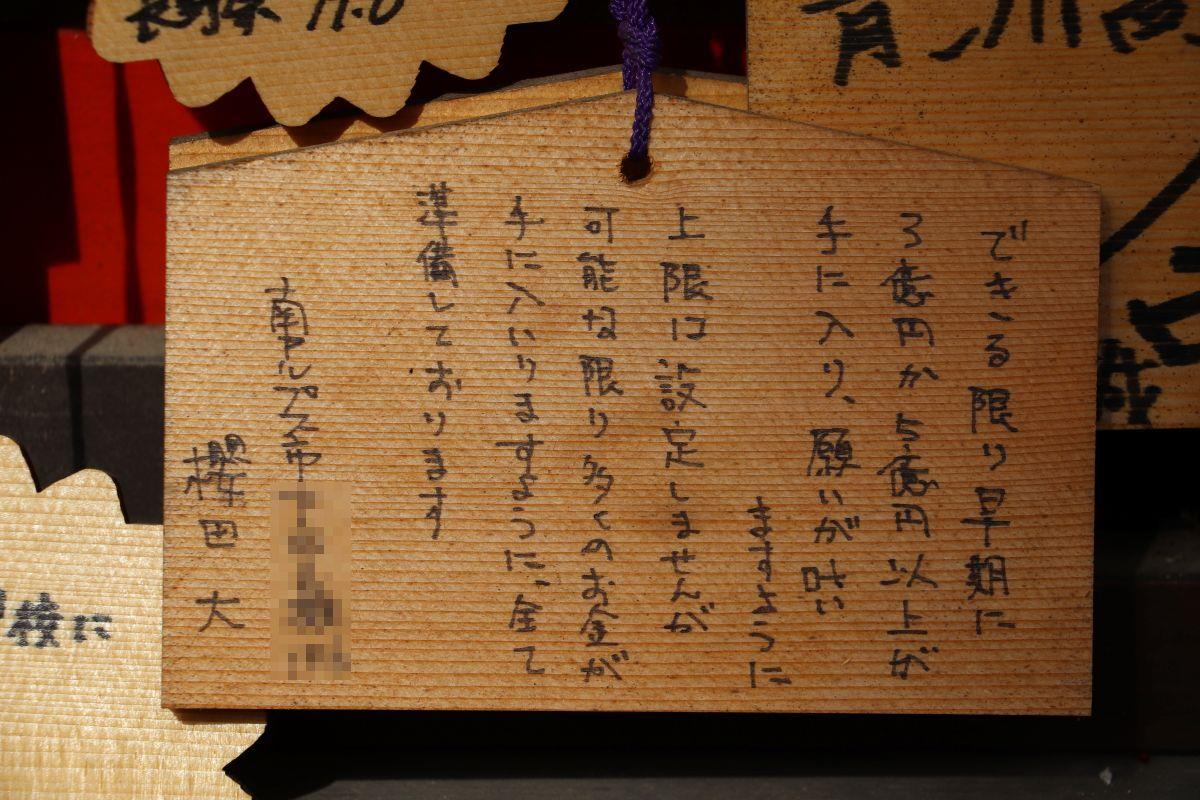 できる限り早期に
3億円か5億円以上が
手に入り、願いが叶い
ますように
上限は設定しませんが
可能な限り多くのお金が
手に入りますように、全て
準備しております
南アルプス市
櫻田大